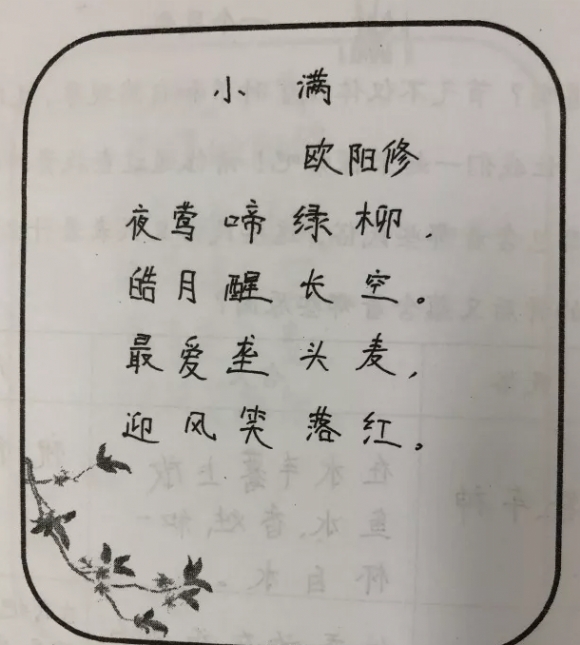 小满
欧阳修
夜莺啼绿柳
皓月醒长空。
最爱垄头麦,
迎风笑落红。